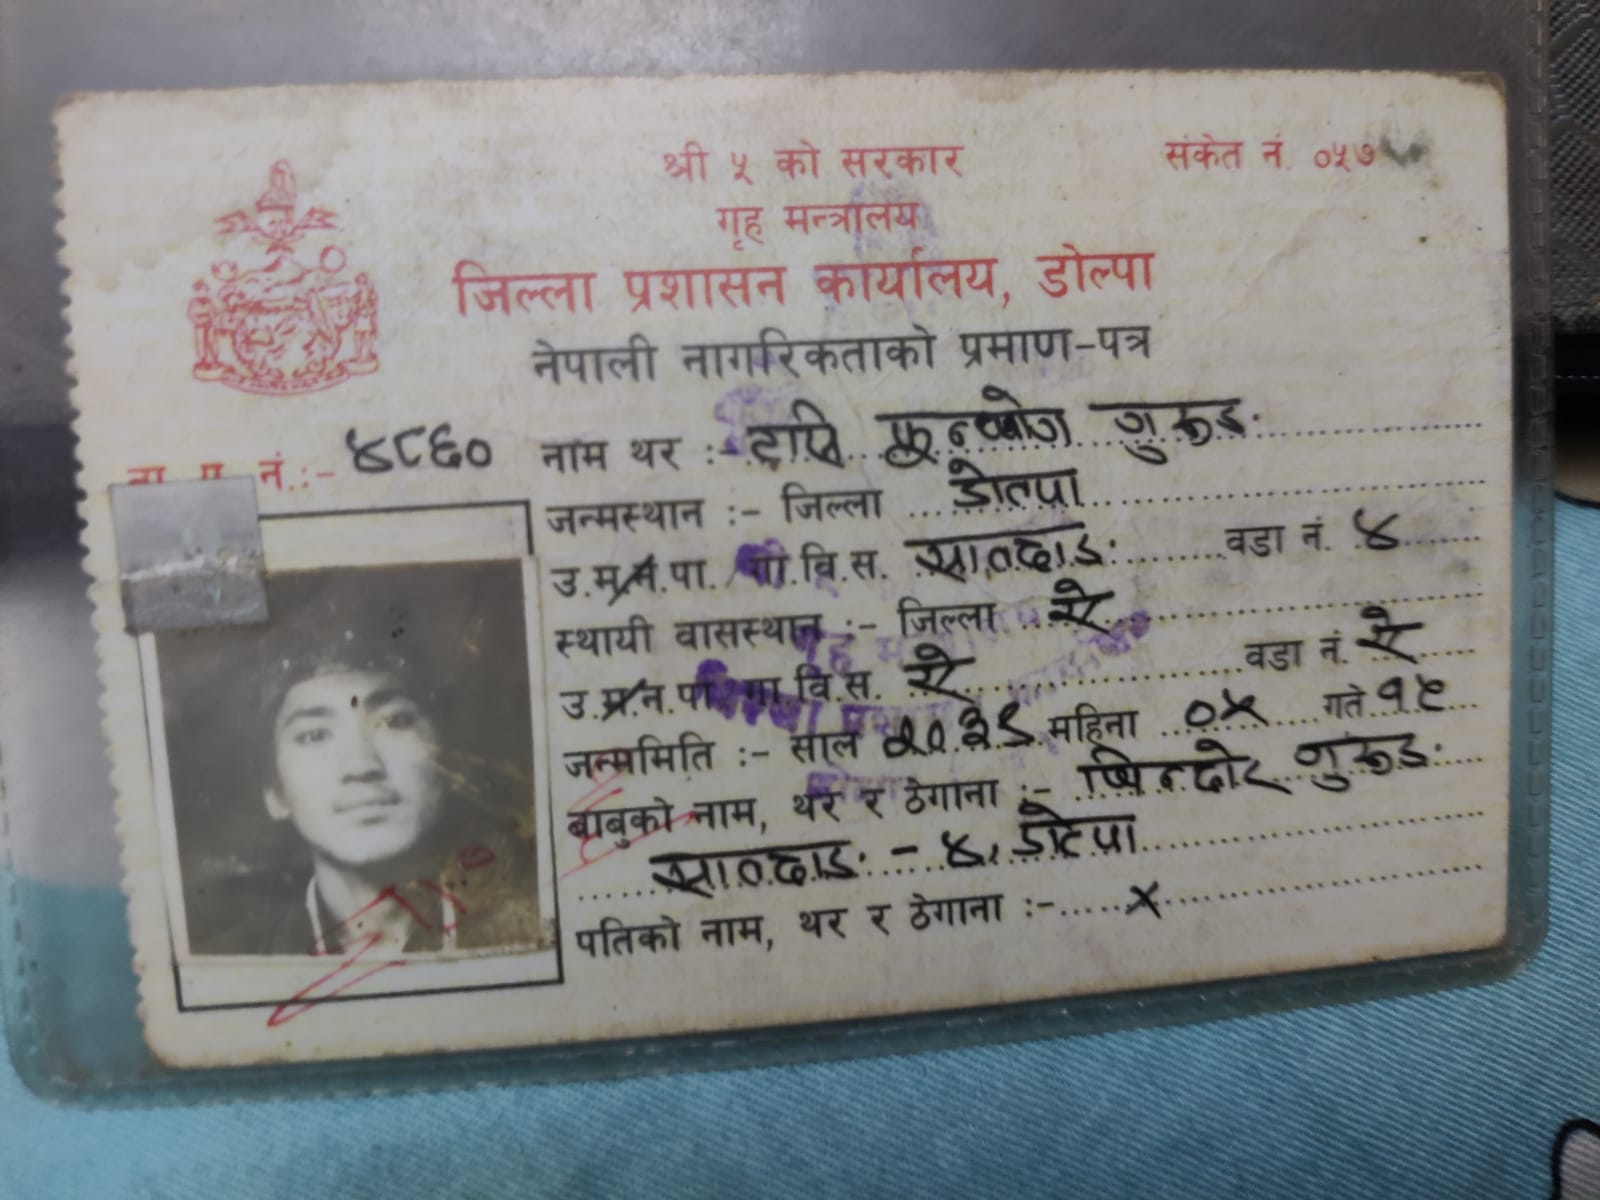 श्री ५ को सरकार
संकेत नं. ०५७
गृह मन्त्रालय
जिल्ला प्रशासन कार्यालय, डोल्पा
नेपाली नागरिकताको प्रमाण-पत्र
ना. प्र. नं.:- ४८६०
नाम थर :- टासि गुरुङ
जन्मस्थान :- जिल्ला डोल्पा
उ.म.न.पा. गा.वि.स. वडा नं. ४
स्थायी वासस्थान :- जिल्ला ऐ
उ.म.न.पा. गा.वि.स. ऐ वडा नं. ऐ
जन्ममिति :- साल महिना ०४ गते १५
बाबुको नाम, थर र ठेगाना :- गुरुङ
- ४, डोल्पा
पतिको नाम, थर र ठेगाना :- x